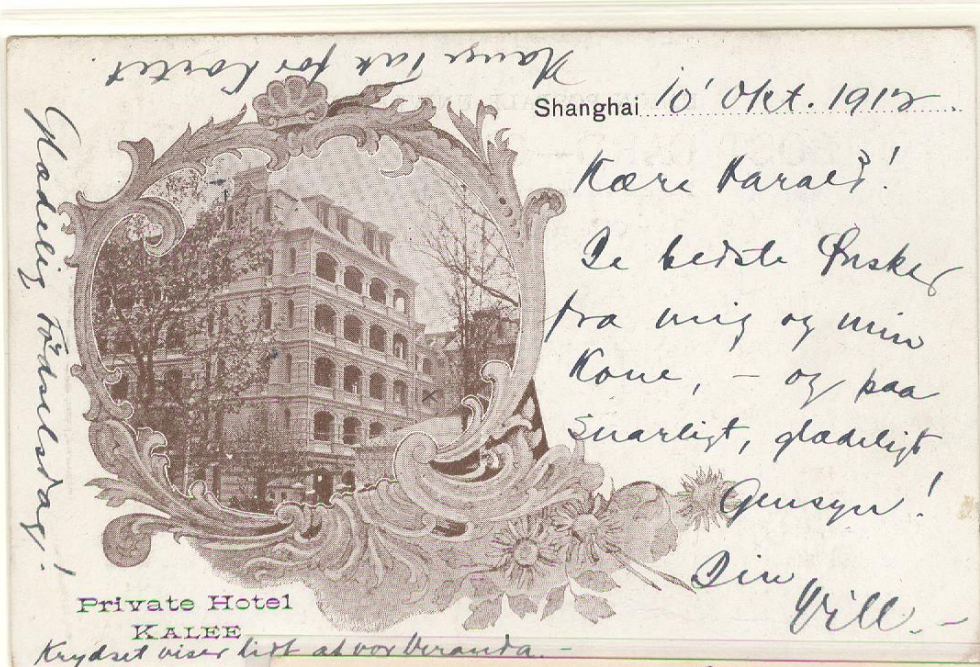 Mange Tak for Kortet
Shanghai 10' Okt. 1912.
Kære Harald!
De bedste Ønsker
fra mig og min
Kone, – og paa
snarligt, glædeligt
Gensyn!
Din
Will. –
Glædelig Fødselsdag!
Private Hotel
KALEE
Krydset viser lidt af vor Veranda. –